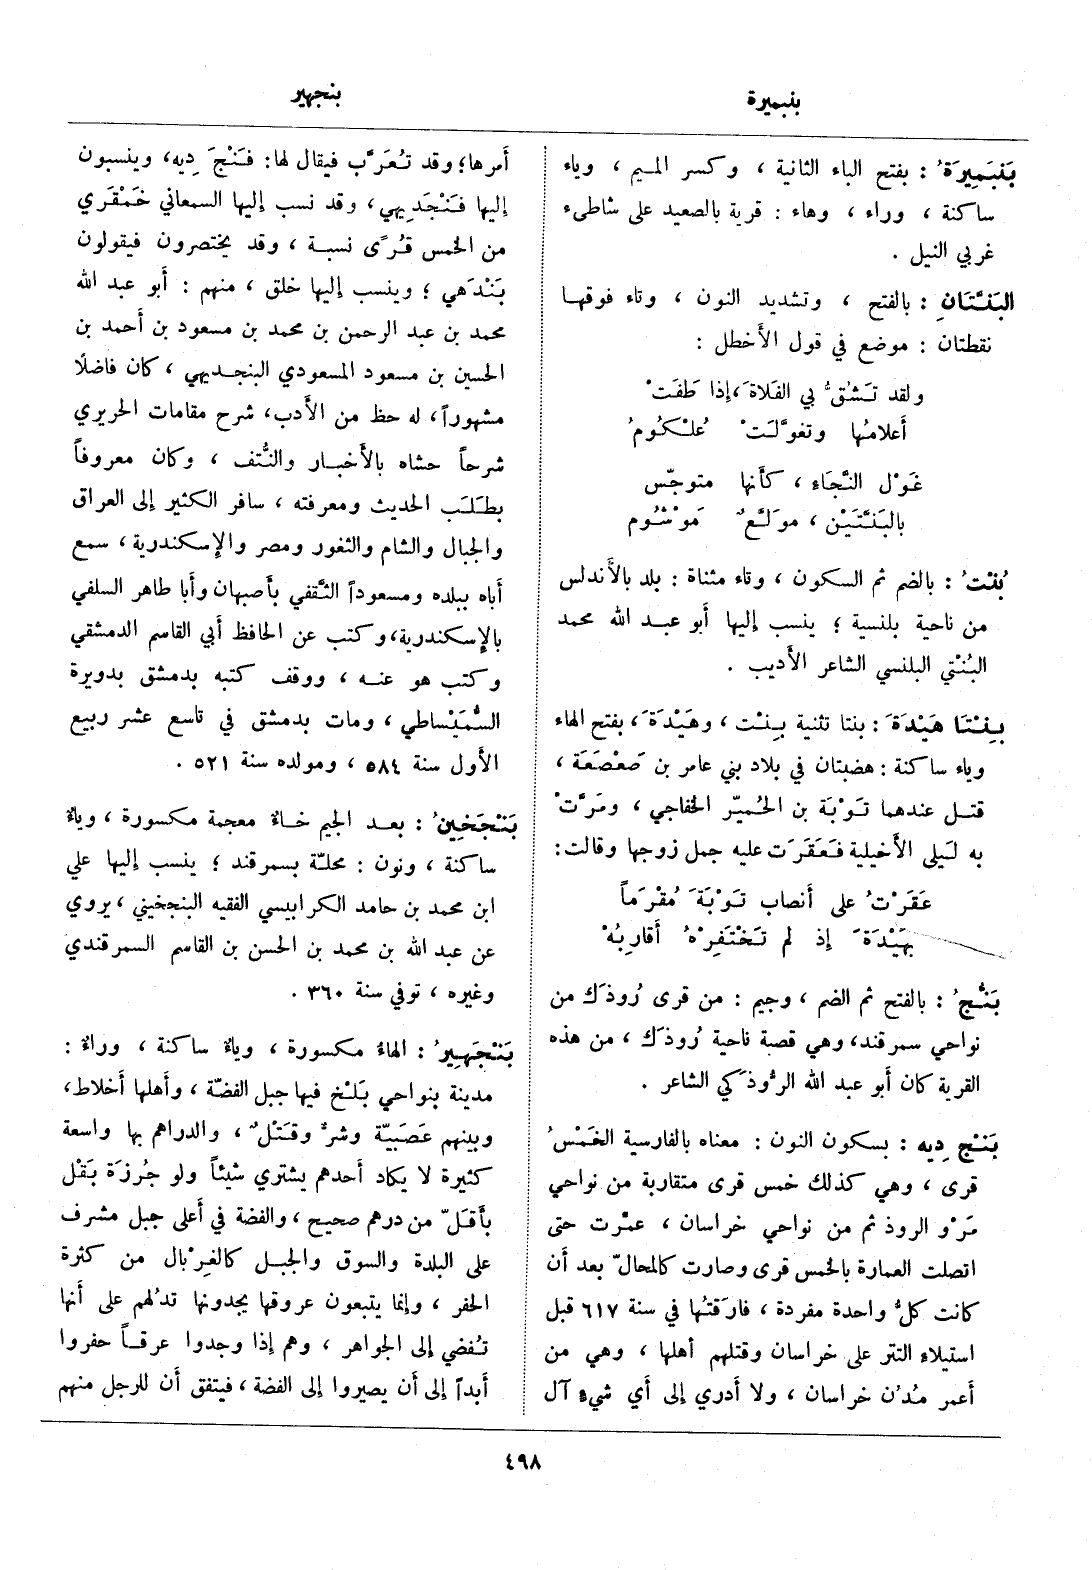 بنبميرة
بنجهير
بَنْبَمِيرَةُ : بفتح الباء الثانية ، وكسر الميم ، وياء
ساكنة ، وراء ، وهاء : قرية بالصعيد على شاطىء
غربي النيل .
البَنَّتَانِ : بالفتح ، وتشديد النون ، وتاء فوقها
نقطتان : موضع في قول الأخطل :
ولقد تَشُقُّ بي الفَلاةَ، إذا طَفَتْ
أعلامُها وتغوَّلَتْ عُلْكُومُ
غَوْل النَّجَاء ، كأنها متوجّس
بالبَنَّتَيْن ، مولَّعٌ مَوْشُوم
بُنْتُ : بالضم ثم السكون ، وتاء مثناة : بلد بالأندلس
من ناحية بلنسية ؛ ينسب إليها أبو عبد الله محمد
البُنْتي البلنسي الشاعر الأديب .
بِنْتَا هَيْدَةَ : بنتا تثنية بِنْت ، وهَيْدَةَ ، بفتح الهاء
وياء ساكنة : هضبتان في بلاد بني عامر بن صَعْصَعَة ،
قتل عندهما تَوْبَة بن الحُميّر الخفاجي ، ومَرَّتْ
به لَيلى الأخيلية فَعَقَرَت عليه جمل زوجها وقالت :
عَقَرْتُ على أنصاب تَوْبَةَ مُقْرَماً
بهَيْدَةَ إذ لم تَحْتَفِرْهُ أقاربُهْ
بَنُجُ : بالفتح ثم الضم ، وجيم : من قرى رُوذَك من
نواحي سمرقند، وهي قصبة ناحية رُوذَك ، من هذه
القرية كان أبو عبد الله الرُّوذَكي الشاعر .
بَنْج دِيه : بسكون النون : معناه بالفارسية الخَمْسُ
قرى ، وهي كذلك خمس قرى متقاربة من نواحي
مَرْو الروذ ثم من نواحي خراسان ، عمّرت حتى
اتصلت العمارة بالخمس قرى وصارت كالمحالّ بعد أن
كانت كلُّ واحدة مفردة ، فارَقتُها في سنة ٦١٧ قبل
استيلاء التتر على خراسان وقتلهم أهلها ، وهي من
أعمر مُدُن خراسان ، ولا أدري إلى أي شيء آل
أمرها؛ وقد تُعَرَّب فيقال لها: فَنْجَ دِيه، وينسبون
إليها فَنْجَدِيهي، وقد نسب إليها السمعاني خَمْقَري
من الخمس قُرًى نسبة ، وقد يختصرون فيقولون
بَنْدَهي ؛ وينسب إليها خلق ، منهم : أبو عبد الله
محمد بن عبد الرحمن بن محمد بن مسعود بن أحمد بن
الحسين بن مسعود المسعودي البنجديهي ، كان فاضلًا
مشهوراً، له حظ من الأدب، شرح مقامات الحريري
شرحاً حشاه بالأخبار والنُّتف ، وكان معروفاً
بطَلَب الحديث ومعرفته ، سافر الكثير إلى العراق
والجبال والشام والثغور ومصر والإسكندرية ، سمع
أباه ببلده ومسعوداً الثَّقفي بأصبهان وأبا طاهر السلفي
بالإسكندرية، وكتب عن الحافظ أبي القاسم الدمشقي
وكتب هو عنه ، ووقف كتبه بدمشق بدويرة
السُّمَيْساطي ، ومات بدمشق في تاسع عشر ربيع
الأول سنة ٥٨٤ ، ومولده سنة ٥٢١ .
بَنْجَخينُ : بعد الجيم خاءٌ معجمة مكسورة ، وياءٌ
ساكنة ، ونون : محلّة بسمرقند ؛ ينسب إليها علي
ابن محمد بن حامد الكرابيسي الفقيه البنجخيني ، يروي
عن عبد الله بن محمد بن الحسن بن القاسم السمرقندي
وغيره ، توفي سنة ٣٦٠ .
بَنْجَهِيرُ : الهاءُ مكسورة ، وياءٌ ساكنة ، وراءٌ :
مدينة بنواحي بَلْخ فيها جبل الفضّة ، وأهلها أخلاط،
وبينهم عَصَبيّة وشرٌّ وقَتْلٌ ، والدراهم بها واسعة
كثيرة لا يكاد أحدهم يشتري شيئاً ولو جُرزَة بَقْل
بأقلّ من درهم صحيح ، والفضة في أعلى جبل مشرف
على البلدة والسوق والجبل كالغِرْبال من كثرة
الحفر ، وإنما يتبعون عروقها يجدونها تدُلهم على أنها
تُفضي إلى الجواهر ، وهم إذا وجدوا عرقاً حفروا
أبداً إلى أن يصيروا إلى الفضة ، فيتفق أن للرجل منهم
٤٩٨